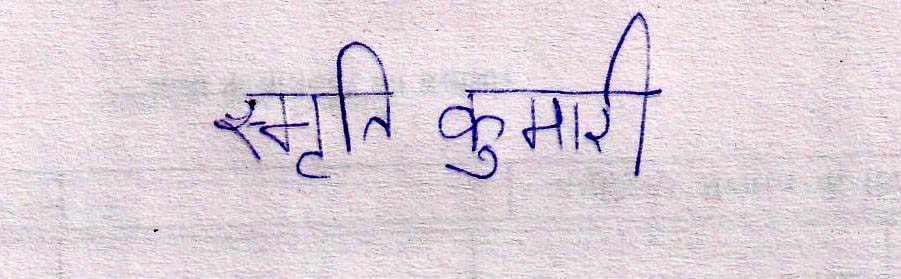 स्मृति कुमारी